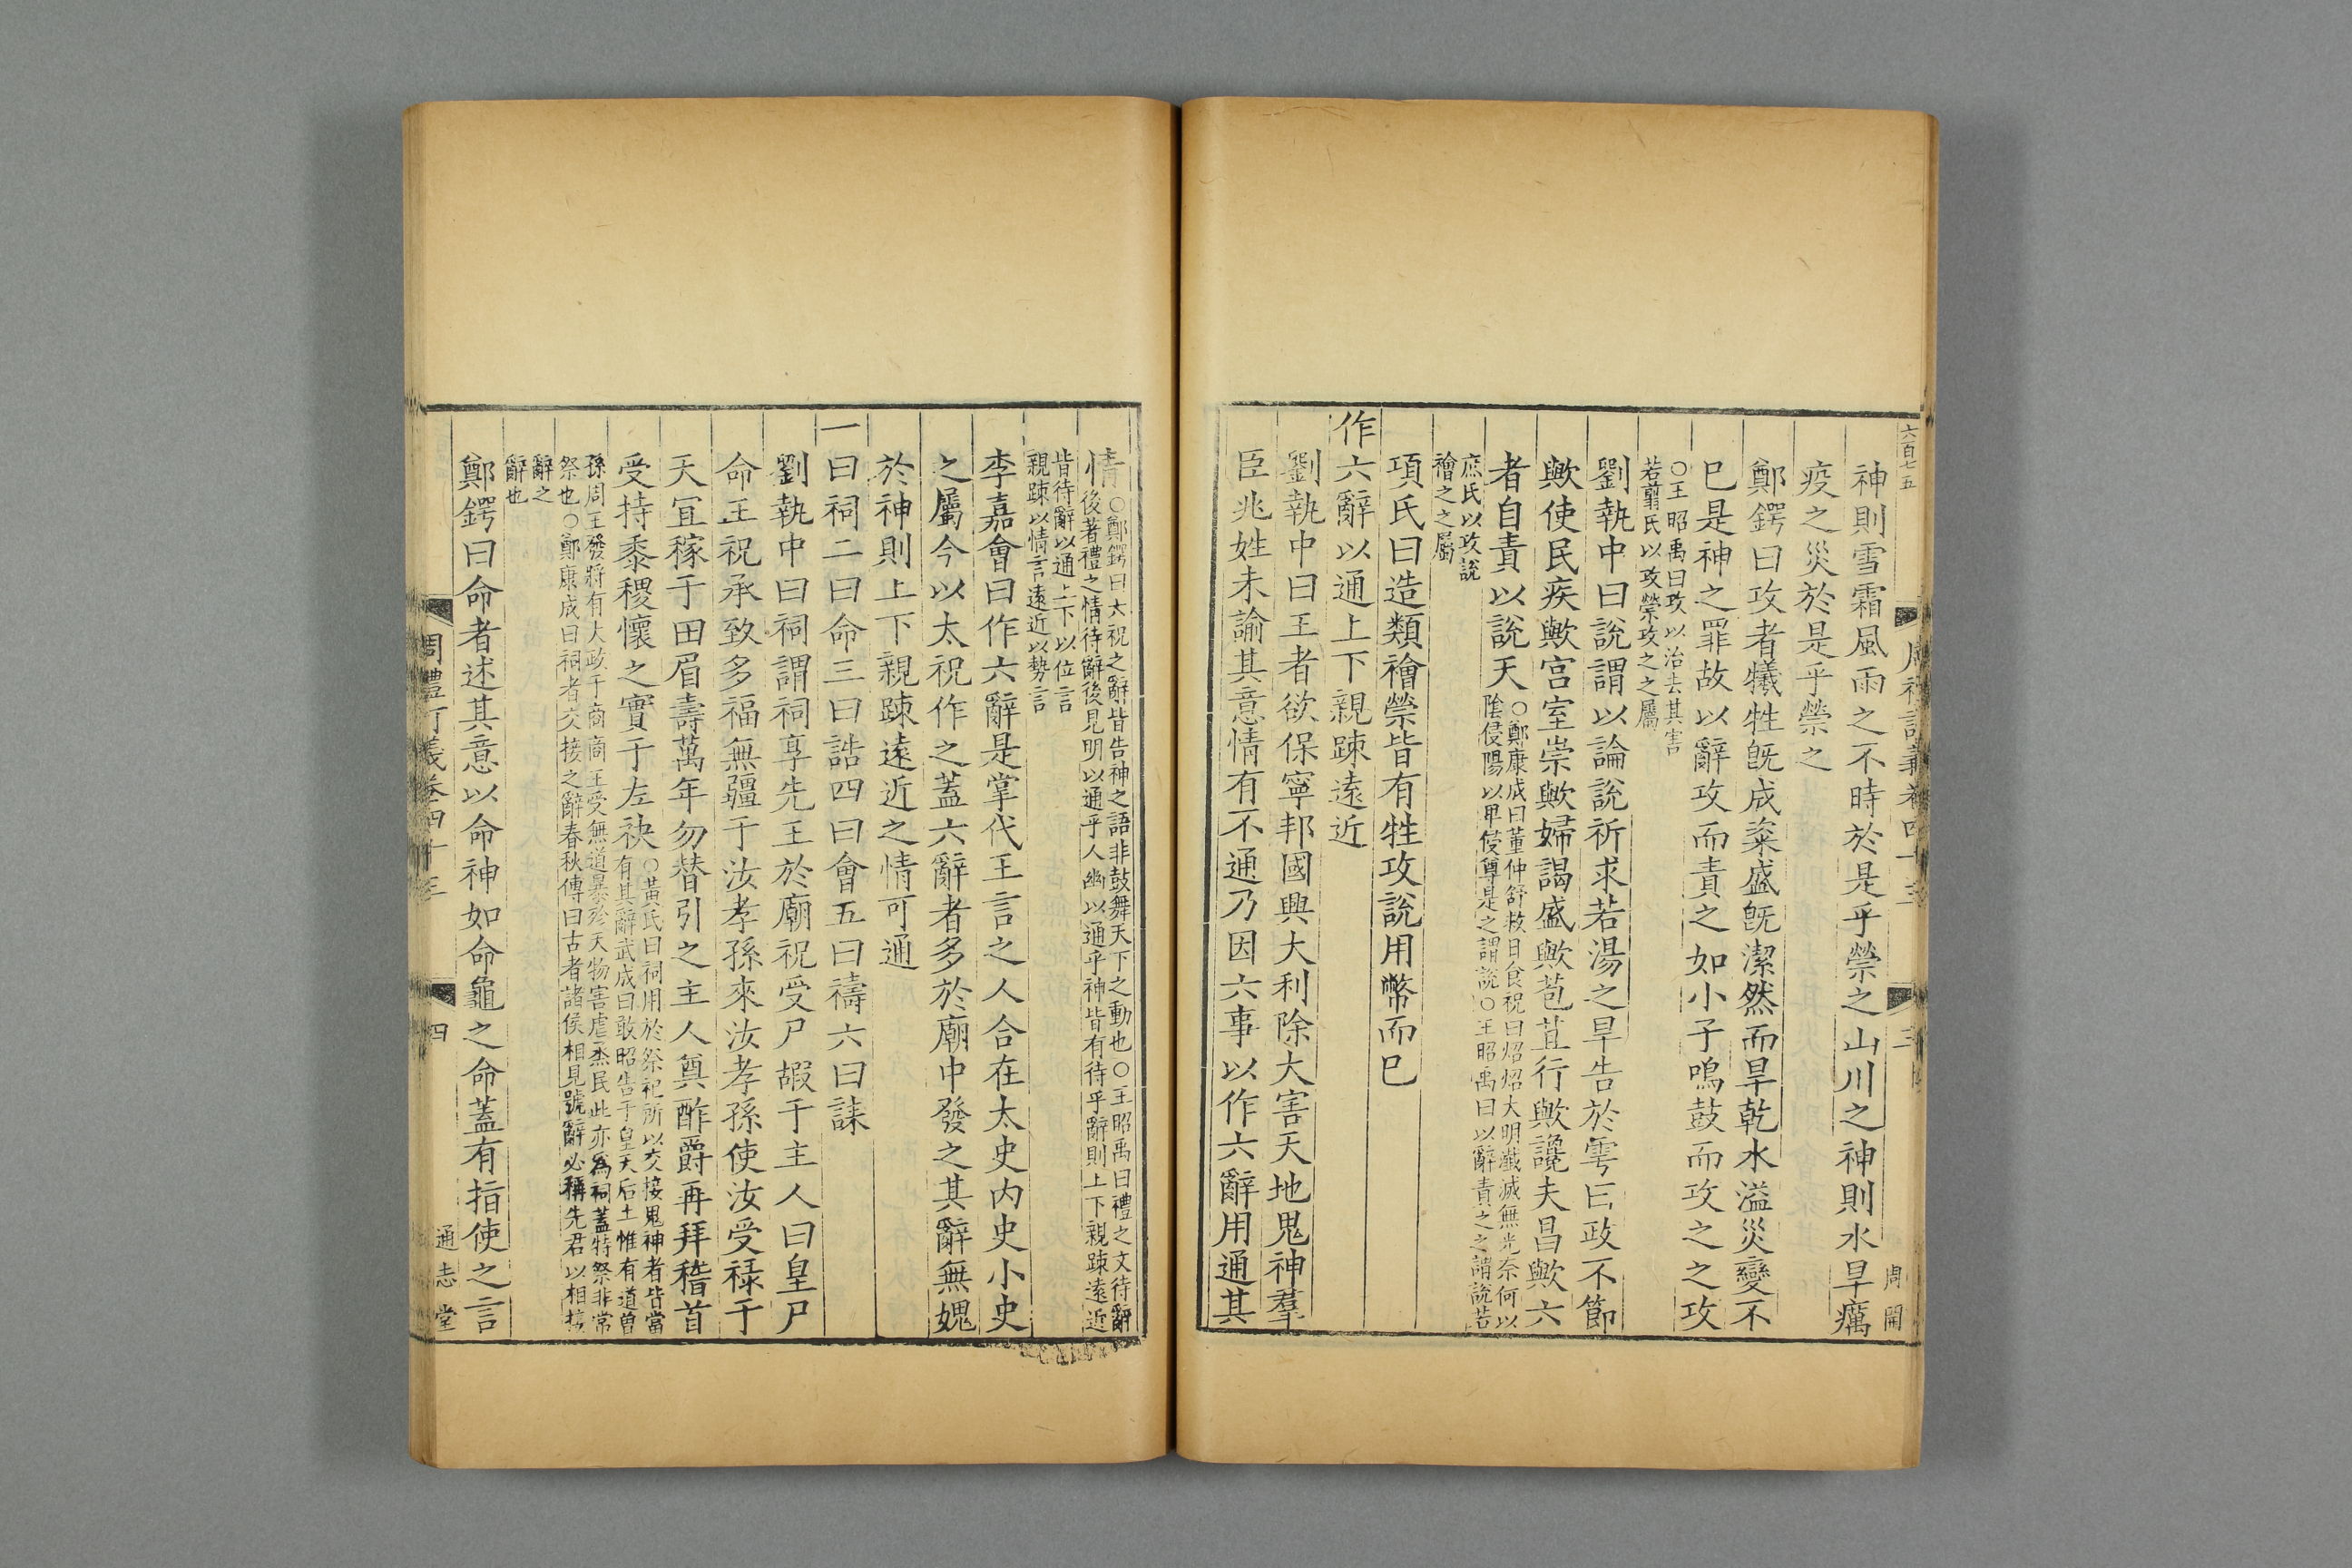 六百七五
周禮訂義卷四十三
三
周開
神則雪霜風雨之不時於是乎禜之山川之神則水旱癘
疫之災於是乎禜之
鄭鍔曰攻者犧牲旣成粢盛旣潔然而旱乾水溢災變不
已是神之罪故以辭攻而責之如小子鳴鼓而攻之之攻
○王昭禹曰攻以治去其害
若翦氏以攻禜攻之之屬
劉執中曰說謂以論說祈求若湯之旱告於雩曰政不節
歟使民疾歟宮室崇歟婦謁盛歟苞苴行歟讒夫昌歟六
者自責以說天
○鄭康成曰董仲舒救日食祝曰炤炤大明瀸滅無光奈何以
陰侵陽以卑侵尊是之謂說○王昭禹曰以辭責之之謂說若
庶氏以攻說
禬之之屬
項氏曰造類禬禜皆有牲攻說用幣而已
作六辭以通上下親踈遠近
劉執中曰王者欲保寧邦國興大利除大害天地鬼神羣
臣兆姓未諭其意情有不通乃因六事以作六辭用通其
情
○鄭鍔曰大祝之辭皆告神之語非鼓舞天下之動也○王昭禹曰禮之文待辭
後著禮之情待辭後見明以通乎人幽以通乎神皆有待乎辭則上下親踈遠近
皆待辭以通上下以位言
親踈以情言遠近以勢言
李嘉會曰作六辭是掌代王言之人合在太史內史小史
之屬今以太祝作之蓋六辭者多於廟中發之其辭無媿
於神則上下親踈遠近之情可通
一曰祠二曰命三曰誥四曰會五曰禱六曰誄
劉執中曰祠謂祠享先王於廟祝受尸嘏于主人曰皇尸
命工祝承致多福無疆于汝孝孫來汝孝孫使汝受祿于
天宜稼于田眉壽萬年勿替引之主人奠酢爵再拜稽首
受持黍稷懷之實于左袂
○黃氏曰祠用於祭祀所以交接鬼神者皆當
有其辭武成曰敢昭告于皇天后土惟有道曾
孫周王發將有大政于商商王受無道暴殄天物害虐烝民此亦爲祠蓋特祭非常
祭也○鄭康成曰祠者交接之辭春秋傳曰古者諸侯相見號辭必稱先君以相接
辭之
辭也
鄭鍔曰命者述其意以命神如命龜之命蓋有指使之言
周禮訂義卷四十三
四
通志堂